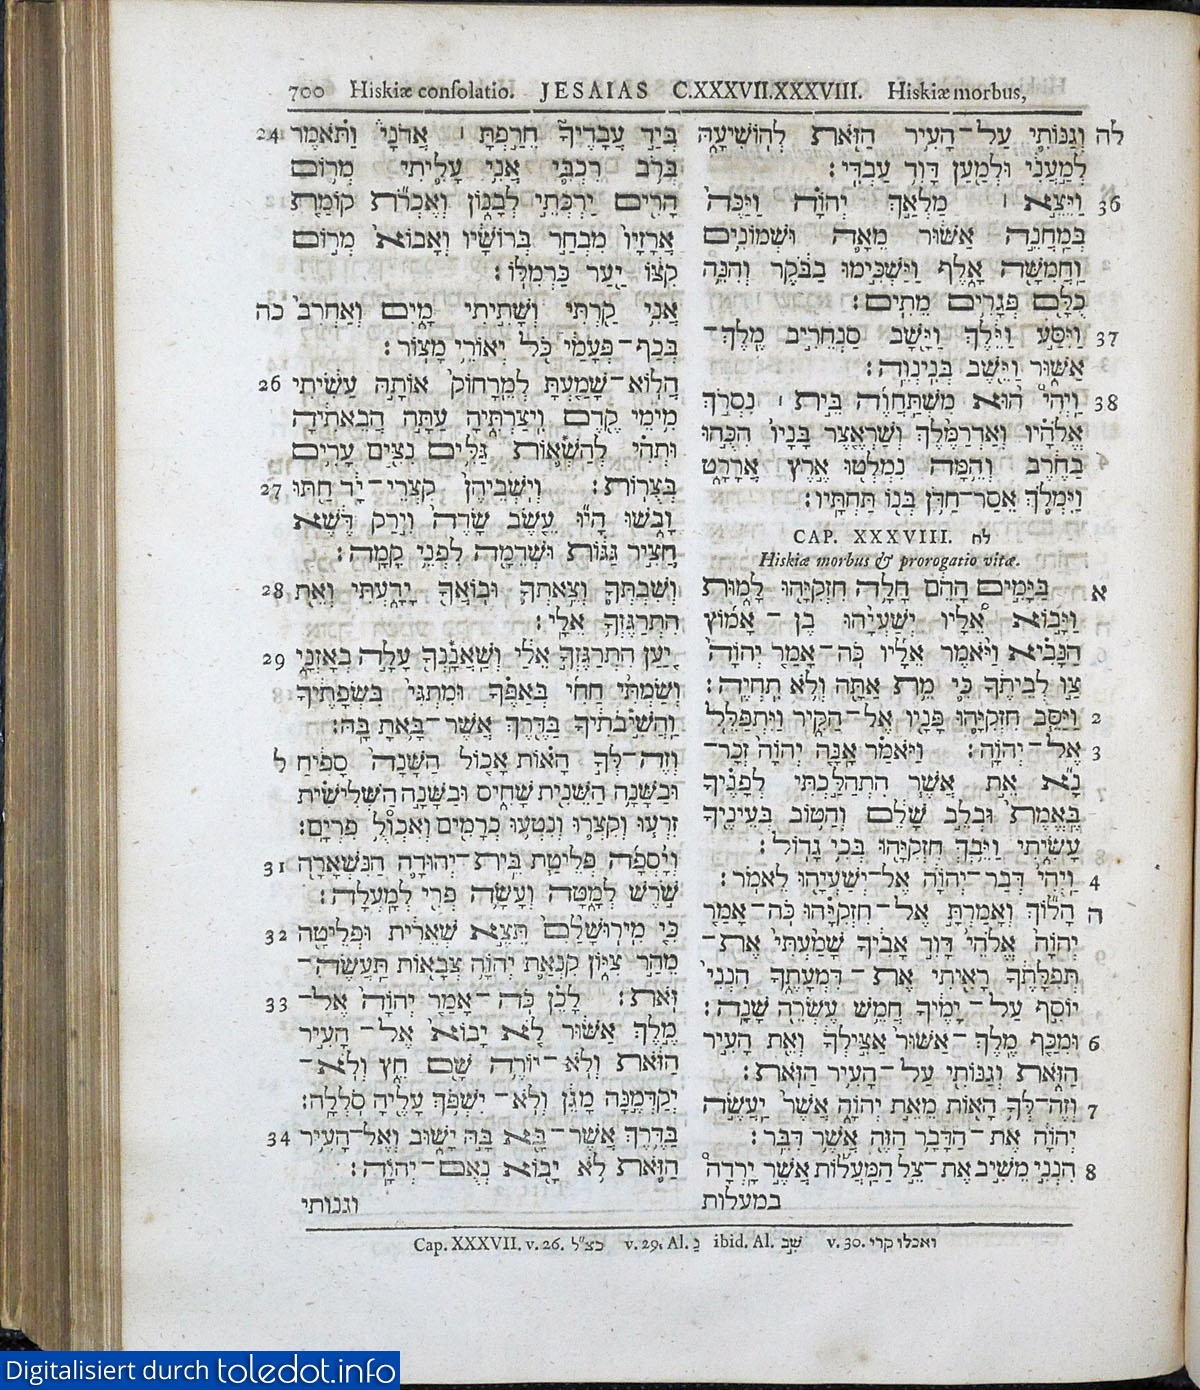 700 Hiskiæ conſolatio. JESAIAS C.XXXVII.XXXVIII. Hiskiæ morbus,
בְּיַד עֲבָדֶיךָ חֵרַפְתָּ ׀ אֲדֹנָי וַתֹּאמֶר 24
בְּרֹב רִכְבִּי אֲנִי עָלִיתִי מְרוֹם
הָרִים יַרְכְּתֵי לְבָנוֹן וְאֶכְרֹת קוֹמַת
אֲרָזָיו מִבְחַר בְּרוֹשָׁיו וְאָבוֹא מְרוֹם
קִצּוֹ יַעַר כַּרְמִלּוֹ׃
אֲנִי קַרְתִּי וְשָׁתִיתִי מָיִם וְאַחרִב כה
בְּכַף־פְּעָמַי כֹּל יְאוֹרֵי מָצוֹר׃
הֲלוֹא־שָׁמַעְתָּ לְמֵרָחוֹק אוֹתָהּ עָשִׂיתִי 26
מִימֵי קֶדֶם וִיצַרְתִּיהָ עַתָּה הֲבֵאתִיהָ
וּתְהִי לְהַשְׁאוֹת גַּלִּים נִצִּים עָרִים
בְּצֻרוֹת׃ וְיֹשְׁבֵיהֶן קִצְרֵי־יָד חַתּוּ 27
וָבֹשׁוּ הָיוּ עֵשֶׂב שָׂדֶה וִירַק דֶּשֶׁא
חֲצִיר גַּגּוֹת וּשְׁדֵמָה לִפְנֵי קָמָה׃
וְשִׁבְתְּךָ וְצֵאתְךָ וּבוֹאֲךָ יָדָעְתִּי וְאֵת 28
הִתְרַגֶּזְךָ אֵלָי׃
יַעַן הִתְרַגֶּזְךָ אֵלַי וְשַׁאֲנַנְךָ עָלָה בְאָזְנָי 29
וְשַׂמְתִּי חַחִי בְּאַפֶּךָ וּמִתְגִּי בִּשְׂפָתֶיךָ
וַהֲשִׁיבֹתִיךָ בַּדֶּרֶךְ אֲשֶׁר־בָּאתָ בָּהּ׃
וְזֶה־לְּךָ הָאוֹת אָכוֹל הַשָּׁנָה סָפִיחַ ל
וּבַשָּׁנָה הַשֵּׁנִית שָׁחִיס וּבַשָּׁנָה הַשְּׁלִישִׁית
זִרְעוּ וְקִצְרוּ וְנִטְעוּ כְרָמִים וְאִכְוֹלֻ פִרְיָם׃
וְיָסְפָה פְּלֵיטַת בֵּית־יְהוּדָה הַנִּשְׁאָרָה 31
שֹׁרֶשׁ לְמָטָּה וְעָשָׂה פְרִי לְמָעְלָה׃
כִּי מִירוּשָׁלִַם תֵּצֵא שְׁאֵרִית וּפְלֵיטָה 32
מֵהַר צִיּוֹן קִנְאַת יְהוָה צְבָאוֹת תַּעֲשֶׂה־
זֹּאת׃ לָכֵן כֹּה־אָמַר יְהוָה אֶל־ 33
מֶלֶךְ אַשּׁוּר לֹא יָבוֹא אֶל־הָעִיר
הַזֹּאת וְלֹא־יוֹרֶה שָׁם חֵץ וְלֹא־
יְקַדְּמֶנָּה מָגֵן וְלֹא־יִשְׁפֹּךְ עָלֶיהָ סֹלְלָה׃
בַּדֶּרֶךְ אֲשֶׁר־בָּא בָּהּ יָשׁוּב וְאֶל־הָעִיר 34
הַזֹּאת לֹא יָבוֹא נְאֻם־יְהוָה׃
וגנותי
לה וְגַנּוֹתִי עַל־הָעִיר הַזֹּאת לְהוֹשִׁיעָהּ
לְמַעֲנִי וּלְמַעַן דָּוִד עַבְדִּי׃
36 וַיֵּצֵא ׀ מַלְאַךְ יְהוָה וַיַּכֶּה
בְּמַחֲנֵה אַשּׁוּר מֵאָה וּשְׁמוֹנִים
וַחֲמִשָּׁה אָלֶף וַיַּשְׁכִּימוּ בַבֹּקֶר וְהִנֵּה
כֻלָּם פְּגָרִים מֵתִים׃
37 וַיִּסַּע וַיֵּלֶךְ וַיָּשָׁב סַנְחֵרִיב מֶלֶךְ־
אַשּׁוּר וַיֵּשֶׁב בְּנִינְוֵה׃
38 וַיְהִי הוּא מִשְׁתַּחֲוֶה בֵּית ׀ נִסְרֹךְ
אֱלֹהָיו וְאַדְרַמֶּלֶךְ וְשַׂרְאֶצֶר בָּנָיו הִכֻּהוּ
בַחֶרֶב וְהֵמָּה נִמְלְטוּ אֶרֶץ אֲרָרָט
וַיִּמְלֹךְ אֵסַר־חַדֹּן בְּנוֹ תַּחְתָּיו׃
CAP. XXXVIII. לח
Hiskiæ morbus & prorogatio vitæ.
א בַּיָּמִים הָהֵם חָלָה חִזְקִיָּהוּ לָמוּת
וַיָּבוֹא אֵלָיו יְשַׁעְיָהוּ בֶן־אָמוֹץ
הַנָּבִיא וַיֹּאמֶר אֵלָיו כֹּה־אָמַר יְהוָה
צַו לְבֵיתֶךָ כִּי מֵת אַתָּה וְלֹא תִחְיֶה׃
2 וַיַּסֵּב חִזְקִיָּהוּ פָּנָיו אֶל־הַקִּיר וַיִּתְפַּלֵּל
3 אֶל־יְהוָה׃ וַיֹּאמַר אָנָּה יְהוָה זְכָר־
נָא אֵת אֲשֶׁר הִתְהַלַּכְתִּי לְפָנֶיךָ
בֶּאֱמֶת וּבְלֵב שָׁלֵם וְהַטּוֹב בְּעֵינֶיךָ
עָשִׂיתִי וַיֵּבְךְּ חִזְקִיָּהוּ בְּכִי גָדוֹל׃
4 וַיְהִי דְּבַר־יְהוָה אֶל־יְשַׁעְיָהוּ לֵאמֹר׃
ה הָלוֹךְ וְאָמַרְתָּ אֶל־חִזְקִיָּהוּ כֹּה־אָמַר
יְהוָה אֱלֹהֵי דָּוִד אָבִיךָ שָׁמַעְתִּי אֶת־
תְּפִלָּתֶךָ רָאִיתִי אֶת־דִּמְעָתֶךָ הִנְנִי
יוֹסִף עַל־יָמֶיךָ חֲמֵשׁ עֶשְׂרֵה שָׁנָה׃
6 וּמִכַּף מֶלֶךְ־אַשּׁוּר אַצִּילְךָ וְאֵת הָעִיר
הַזֹּאת וְגַנּוֹתִי עַל־הָעִיר הַזֹּאת׃
7 וְזֶה־לְּךָ הָאוֹת מֵאֵת יְהוָה אֲשֶׁר יַעֲשֶׂה
יְהוָה אֶת־הַדָּבָר הַזֶּה אֲשֶׁר דִּבֵּר׃
8 הִנְנִי מֵשִׁיב אֶת־צֵל הַמַּעֲלוֹת אֲשֶׁר יָרְדָה
במעלות
Cap. XXXVII. v. 26. כצ״ל v. 29. Al. נַ ibid. Al. שִׁב v. 30. ואכלו קרי
Digitalisiert durch toledot.info